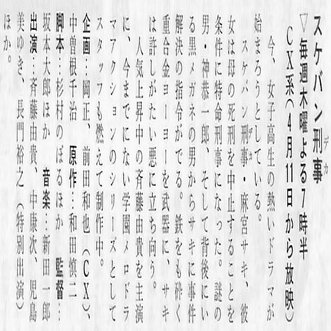 スケバン刑事
デカ
▽毎週木曜よる7時半
CX系(4月11日から放映)
今、女子高生の熱いドラマが
始まろうとしている。
スケバン刑事・麻宮サキ、彼
女は母の死刑を中止することを
条件に特命刑事になった。謎の
男・神恭一郎、そして背後にい
る黒メガネの男からサキに事件
解決の指令がでる。鉄をも砕く
重合金ヨーヨーを武器に、サキ
は許しがたい悪に立ち向う。
人気上昇中の斉藤由貴を主演
に、今までにない学園ハロドラ
マアクションのシリーズとして
スタッフも燃えて制作中。
企画…岡正、前田和也(CX)、
中曽根千治 原作…和田慎二
脚本…杉村のぼるほか 監督…
坂本太郎ほか 音楽…新田一郎
出演…斉藤由貴、中康次、児島
美ゆき、長門裕之(特別出演)
ほか。